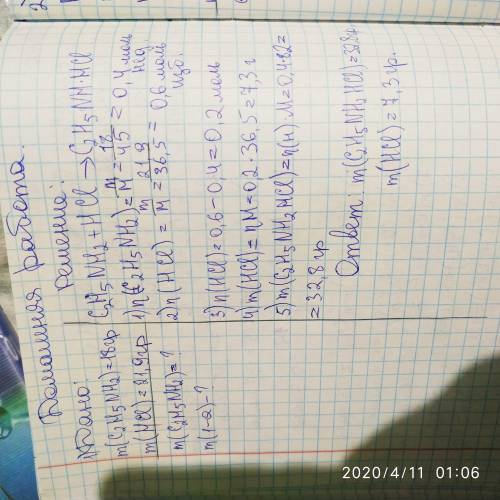 Домашняя работа.
Дано:
m(C2H5NH2)=18гр
m(HCl)=21,9гр
m(C2H5NH2)=?
m(1-2)-?
Решение:
C2H5NH2+HCl→C2H5NH2HCl
1) n(C2H5NH2)=m/M=18/45=0,4 моль нед.
2) n(HCl)=m/M=21,9/36,5=0,6 моль изб.
3) n(HCl)=0,6-0,4=0,2 моль
4) m(HCl)=nM=0,2·36,5=7,3 г
5) m(C2H5NH2HCl)=n(н)·M=0,4·82=
=32,8 гр
Ответ: m(C2H5NH2HCl)=32,8г
m(HCl)=7,3гр.
2020/4/11 01:06